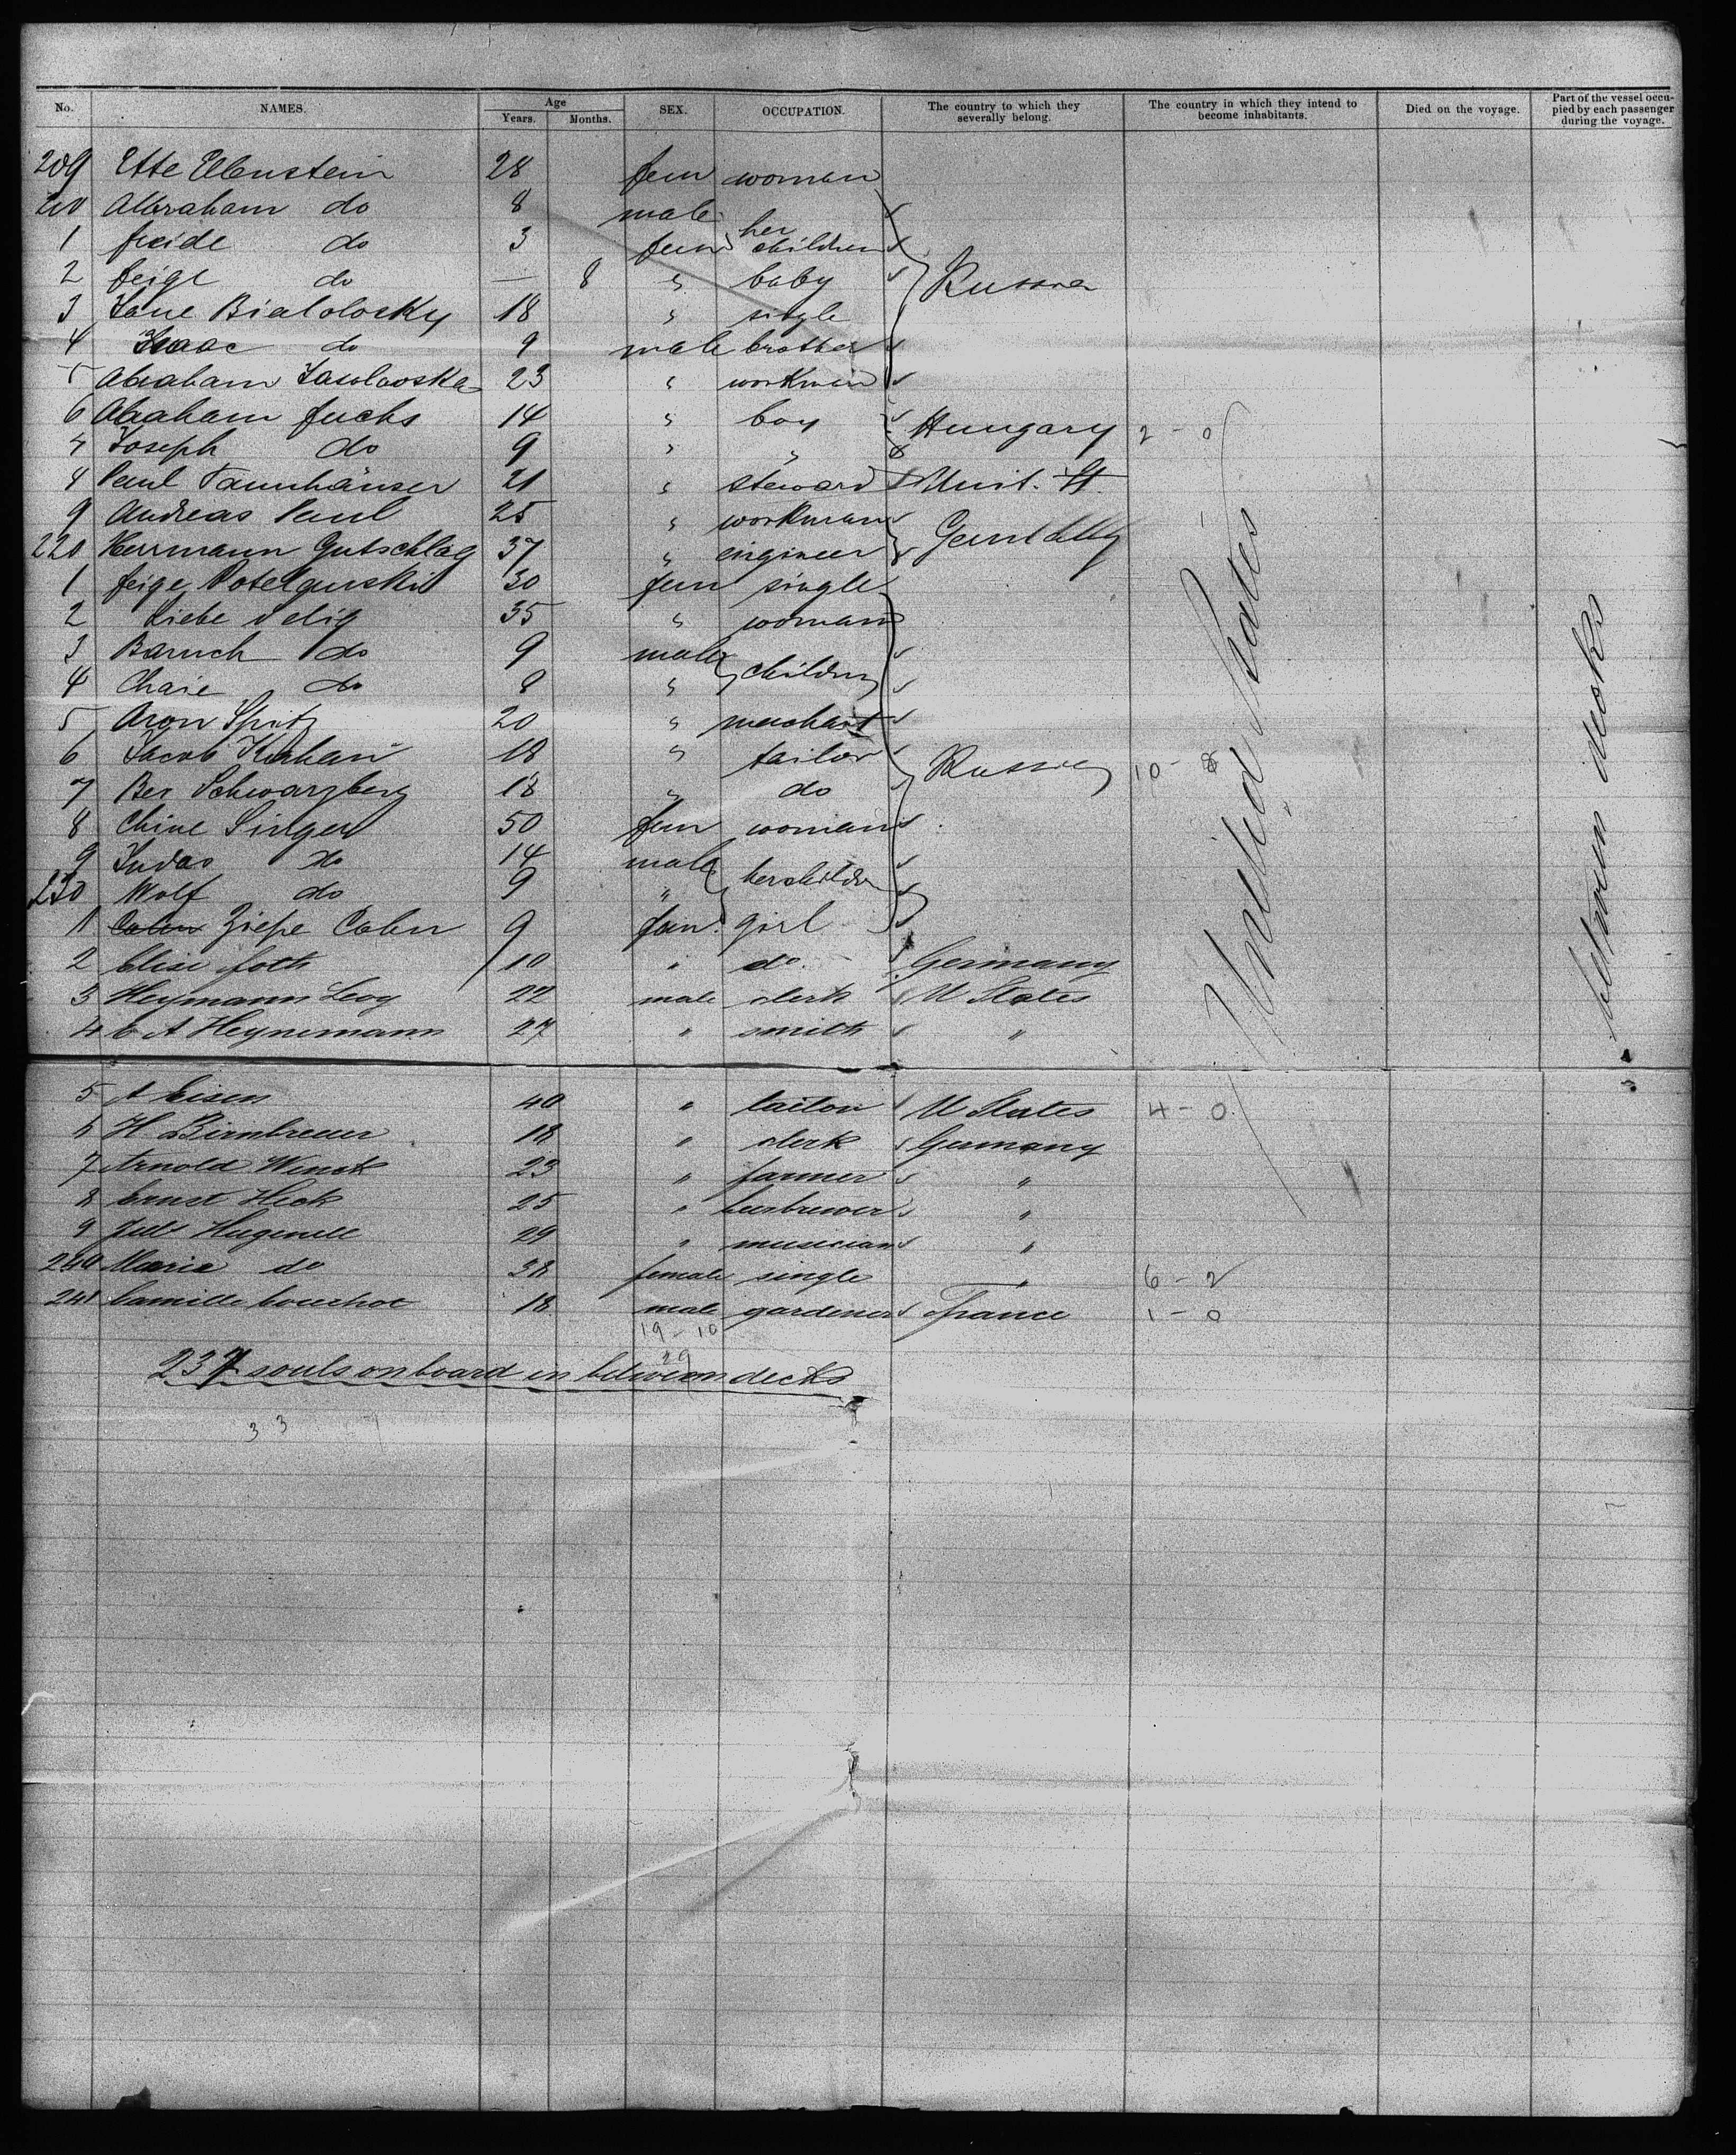 No. NAMES. Age Years. Months. SEX. OCCUPATION. The country to which they severally belong. The country in which they intend to become inhabitants. Died on the voyage. Part of the vessel occupied by each passenger during the voyage.
209 Ette Ellenstein 28 fem woman
210 Abraham do 8 male
1 freide do 3 fem her children
2 feige do — 8 " baby Russia
3 Jane Bialolocky 18 " single
4 Isaac do 9 male brother
5 Abraham 23 " workman
6 Abraham fuchs 14 " boy Hungary 2 - 0
7 Joseph do 9 " "
8 Paul Tannhäuser 21 " steward Unit. St.
9 Andreas Paul 25 " workman
220 Herrmann Gutschlag 37 " engineer
1 feige 30 fem single
2 Liebe Selig 35 " woman
3 Baruch do 9 male children
4 Chaie do 8 "
5 Aron Spitz 20 " merchant
6 Jacob 18 " tailor Russia 10 - 8
7 Ber Schwarzberg 18 " do
8 Chine Singer 50 fem woman
9 Judas do 14 male her children
230 Wolf do 9 "
1 Ziepe Cohn 9 fem. girl
2 Elise foth 10 " do. Germany
3 Heymann Levy 22 male clerk U States
4 C A Heynemann 27 " smith "
5 A Eisen 40 " tailor U States 4 - 0
6 H. Birnbreuer 18 " clerk Germany
7 Arnold Wenck 23 " farmer "
8 Ernst Heck 25 " beerbrewer "
9 Hugenell 29 " musician "
240 Maria do 38 female single " 6 - 2
241 Camille 18 male gardener France 1 - 0
19 - 10
29
237 souls on board in between decks
33
United States
between decks